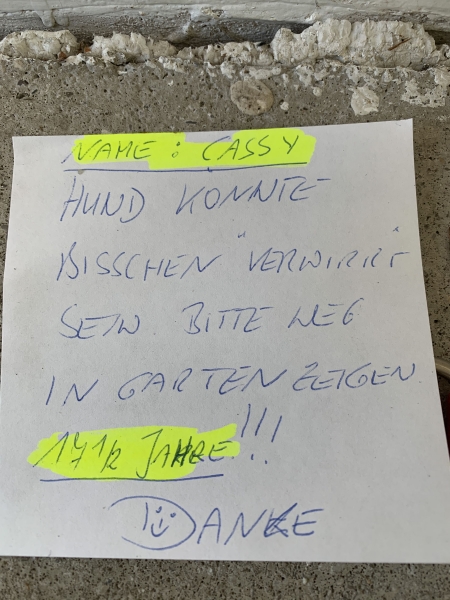 NAME: CASSY
HUND KÖNNTE
BISSCHEN "VERWIRRT"
SEIN BITTE WEG
IN GARTEN ZEIGEN
17 1/2 JAHRE!!!
DANKE